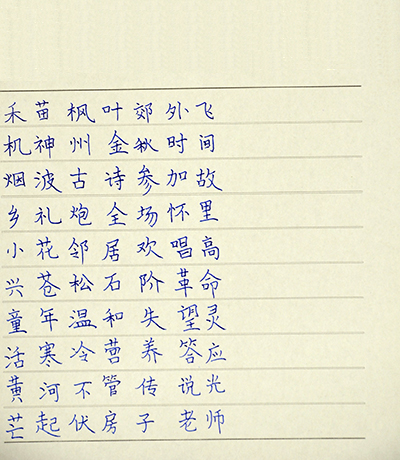 禾苗枫叶郊外飞
机神州金秋时间
烟波古诗参加故
乡礼炮全场怀里
小花邻居欢唱高
兴苍松石阶革命
童年温和失望灵
活寒冷营养答应
黄河不管传说光
芒起伏房子老师